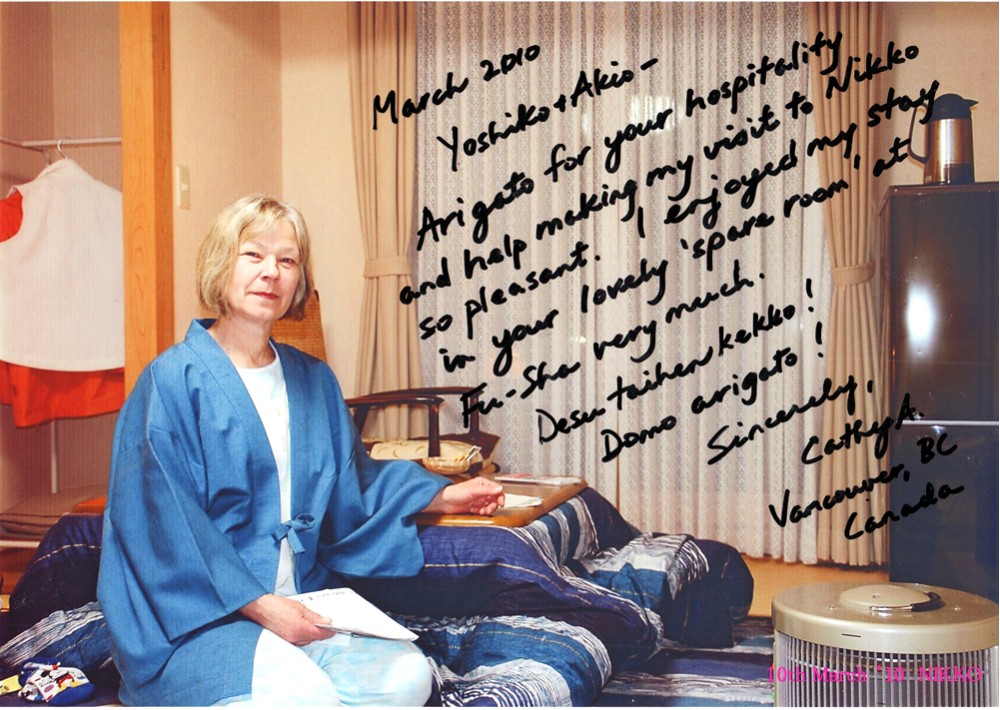 March 2010
Yoshiko + Akio -
Arigato for your hospitality
and help making my visit to Nikko
so pleasant. I enjoyed my stay
in your lovely 'spare room' at
Fu-Sha very much.
Desu taihen kekko!
Domo arigato!
Sincerely,
Cathy A.
Vancouver, BC
Canada
10th March '10 NIKKO